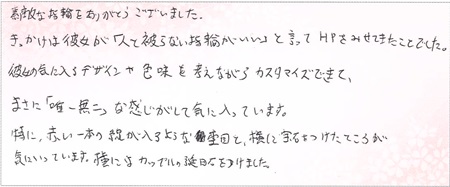 素敵な指輪をありがとうございました。
きっかけは彼女が「人と被らない指輪がいい」と言ってHPをみせてきたことでした。
彼女の気に入るデザインや色味を考えながらカスタマイズできて、
まさに「唯一無二」な感じがして気に入っています。
特に、赤い一本の線が入るような木目と、横に宝石をつけたところが
気にいっています。横にはカップルの誕生石をつけました。